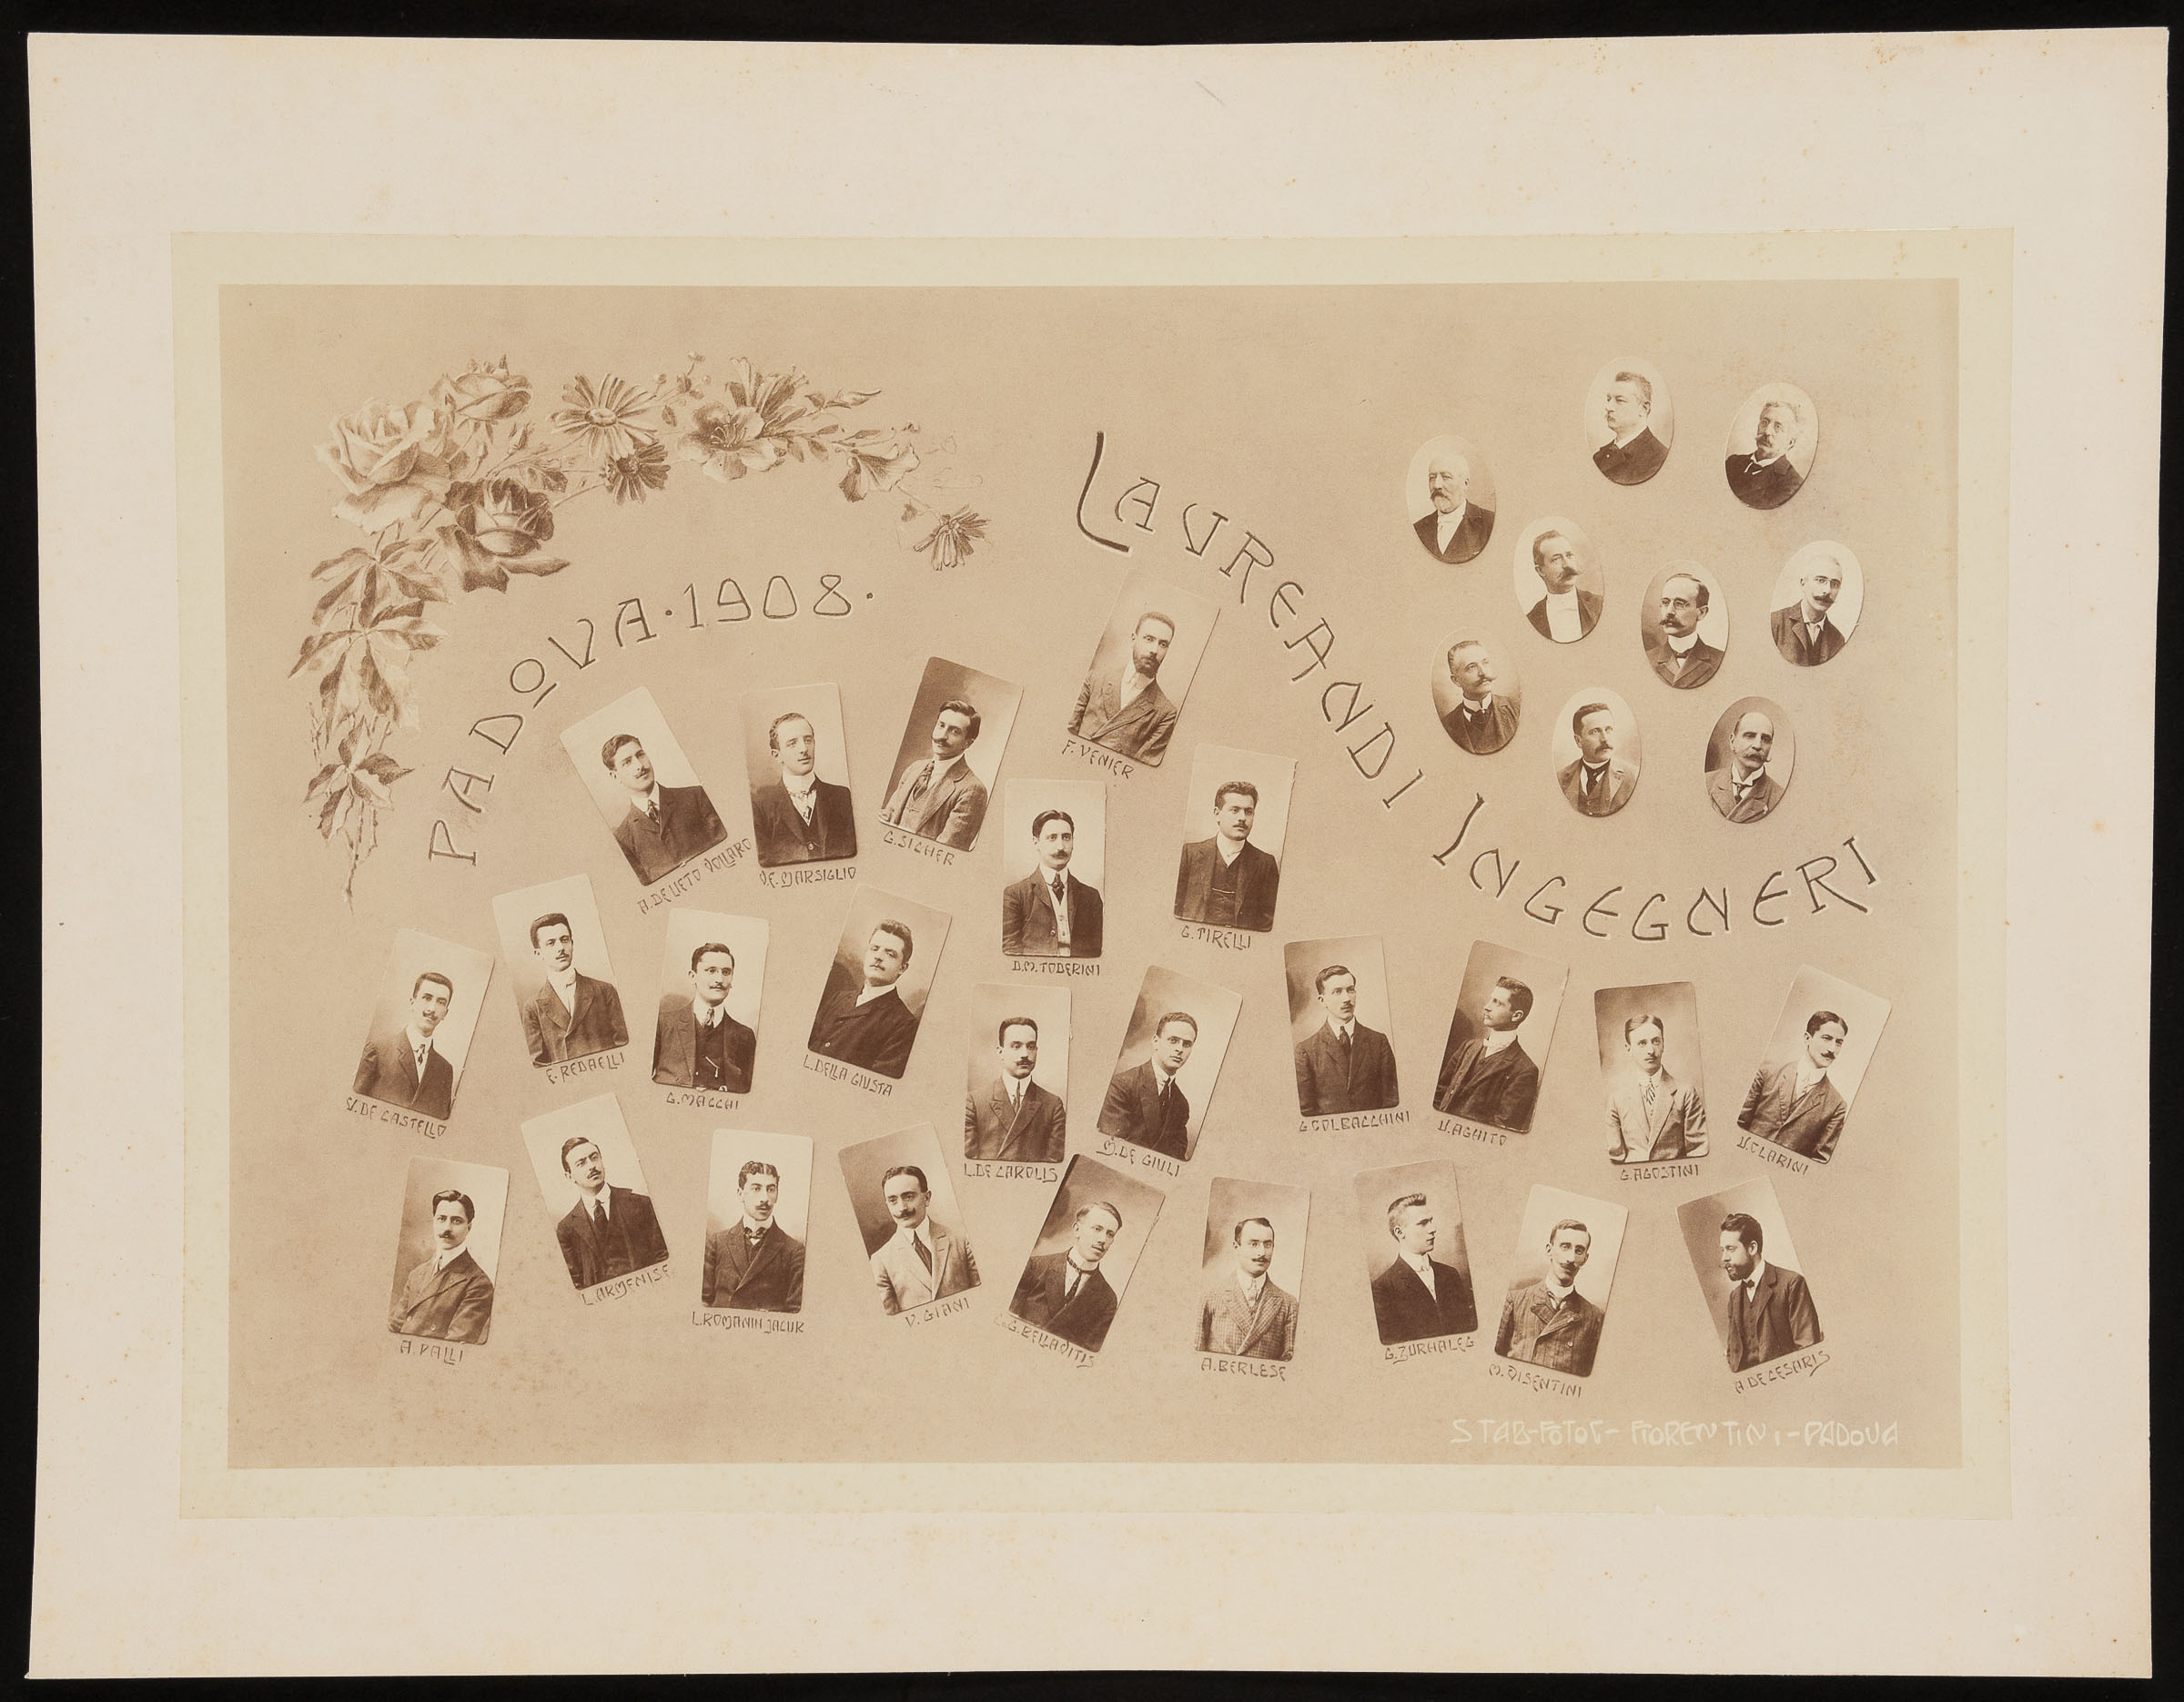 PADOVA·1908·
LAUREANDI INGEGNERI
F. VENIER
A. DE LIETO VOLLARO
G. SICHER
V.E. MARSIGLIO
G. TIRELLI
D.M. TODERINI
E. REDAELLI
L. DELLA GIUSTA
G. MACCHI
V. DE CASTELLO
G. COLBACCHINI
V. AGHITO
M. DE GIULI
L. DE CAROLIS
G. AGOSTINI
V. CLARINI
L. ARMENISE
L. ROMANIN JACUR
V. GIANI
G. BELLAVITIS
A. PALLI
A. BERLESE
G. ZURHALEG
M. VISENTINI
A. DE CESARIS
STAB-FOTOG- FIORENTINI-PADOVA